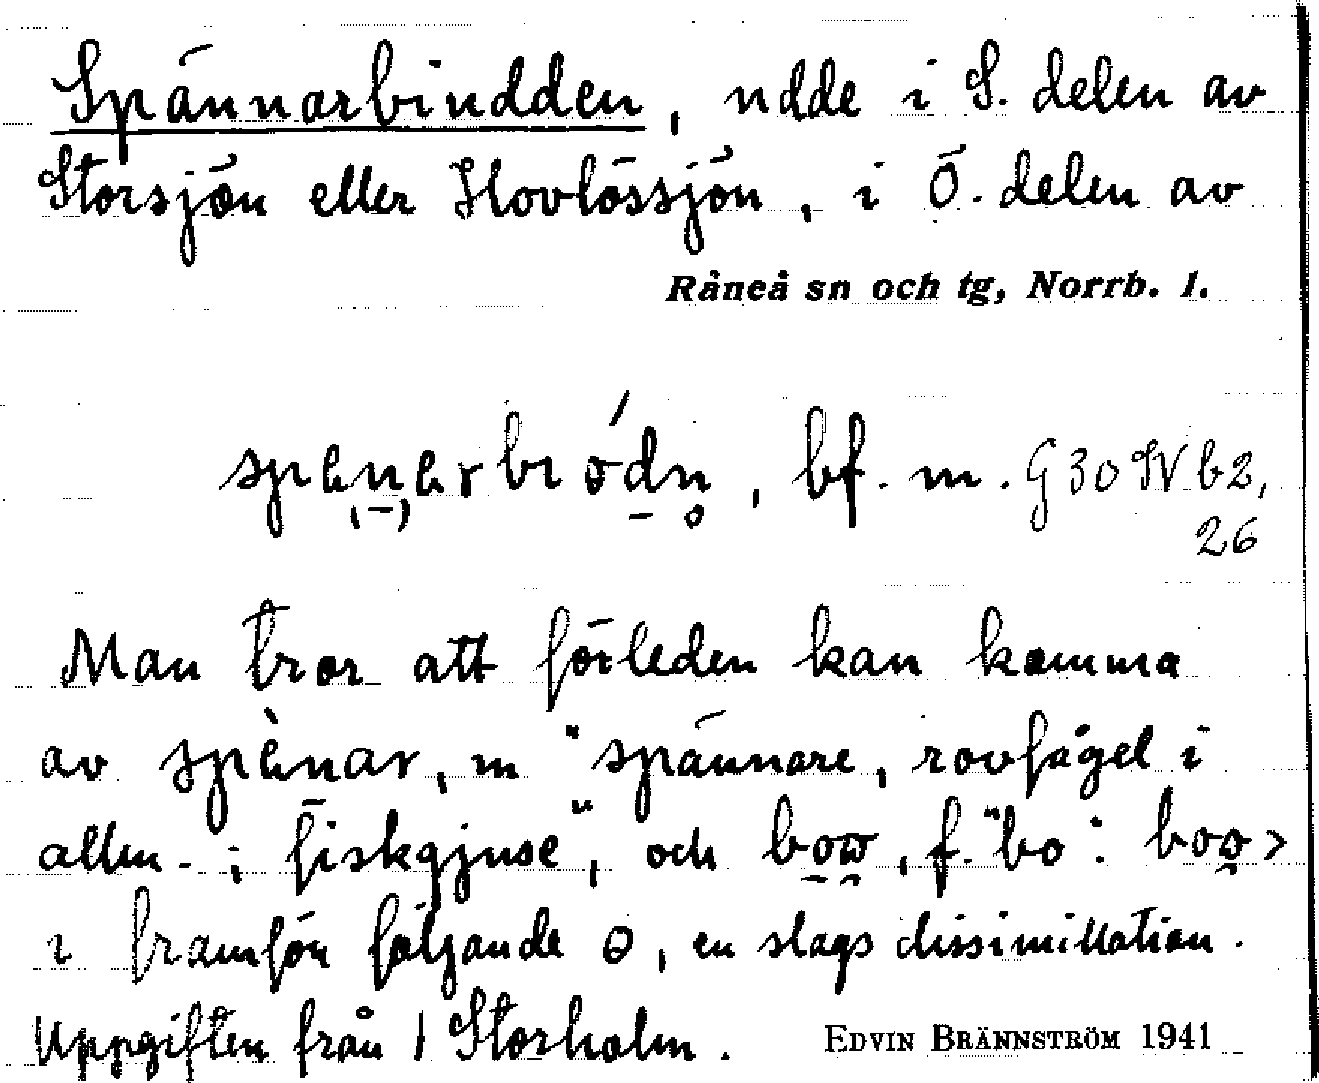 Spännarbindden, ndde i S. delen av
Storsjön eller Hovlössjön, i Ö. delen av
Råneå sn och tg, Norrb. l.
bf. m. G30 IV b2,
26
Man tror att förleden kan komma
av spènar, m "spännare, rovfågel i
allm. ; fiskgjuse", och f. "bo".
ı framför följande o, en slags dissimillation.
Uppgiften från 1 Storholm. EDVIN BRÄNNSTRÖM 1941